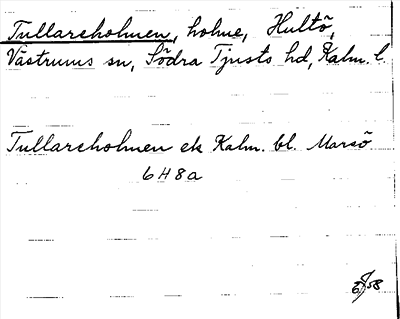 Tullareholmen, holme, Hultö,
Västrums sn, Södra Tjusts hd, Kalm. l.
Tullareholmen ek Kalm. bl. Marsö
648a